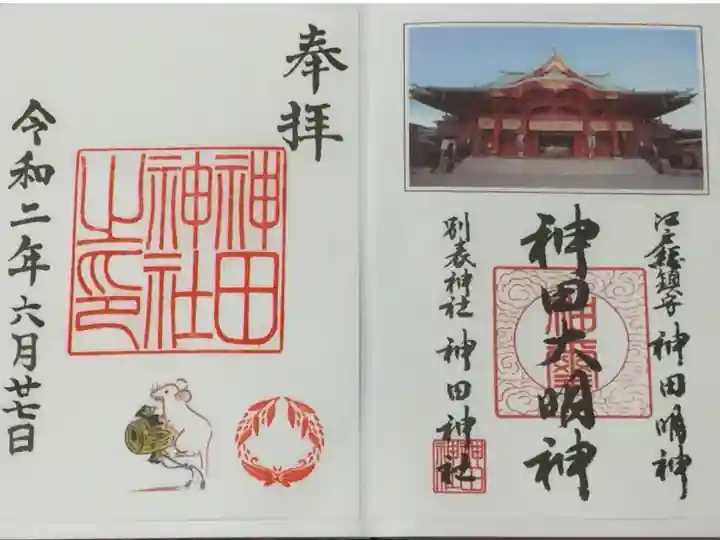 奉拝
神田
神社
之印
令和二年六月廿七日
江戸総鎮守 神田明神
神田大明神
別表神社 神田神社
神田
神社